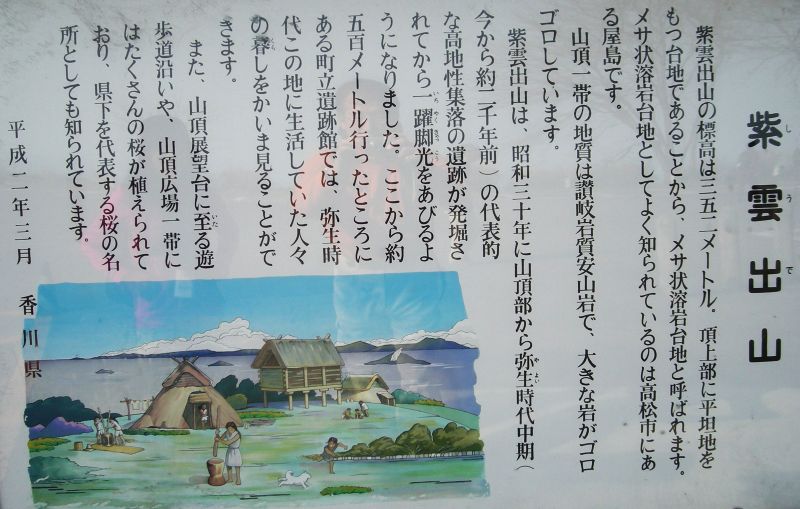 紫雲出山
し う で
紫雲出山の標高は三五二メートル。頂上部に平坦地を
もつ台地であることから、メサ状溶岩台地と呼ばれます。
メサ状溶岩台地としてよく知られているのは高松市にあ
る屋島です。
山頂一帯の地質は讃岐岩質安山岩で、大きな岩がゴロ
ゴロしています。
紫雲出山は、昭和三十年に山頂部から弥生時代中期(
やよい
今から約二千年前)の代表的
な高地性集落の遺跡が発掘さ
れてから一躍脚光をあびるよ
いちやくきゃっこう
うになりました。ここから約
五百メートル行ったところに
ある町立遺跡館では、弥生時
代この地に生活していた人々
の暮しをかいま見ることがで
くら
きます。
また、山頂展望台に至る遊
いた
歩道沿いや、山頂広場一帯に
はたくさんの桜が植えられて
おり、県下を代表する桜の名
所としても知られています。
平成二年三月 香川県